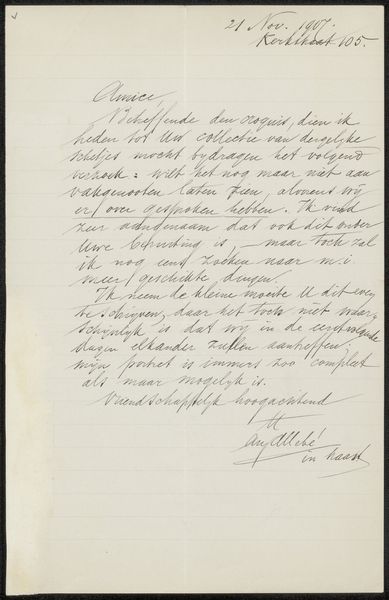 21 Nov. 1907.
Kerkstraat 105.
Amice,
Betreffende den croquis, dien ik
heden tot Uw collectie van dergelijke
schetsjes mocht bijdragen het volgend
verzoek: wilt het nog maar niet aan
vakgenooten laten zien, alvorens wij
er over gesproken hebben. Ik vind
zeer aangenaam dat ook dit onder
Uwe berusting is, — maar toch zal
ik nog eens zoeken naar m.i.
meer geschikte dingen.
Ik neem de kleine moeite U dit even
te schrijven, daar het toch niet waar-
schijnlijk is dat wij in de eerstvolgende
dagen elkander zullen aantreffen:
mijn portret is immers zoo compleet
als maar mogelijk is.
Vriendschappelijk hoogachtend
Aug Allebé
in haast